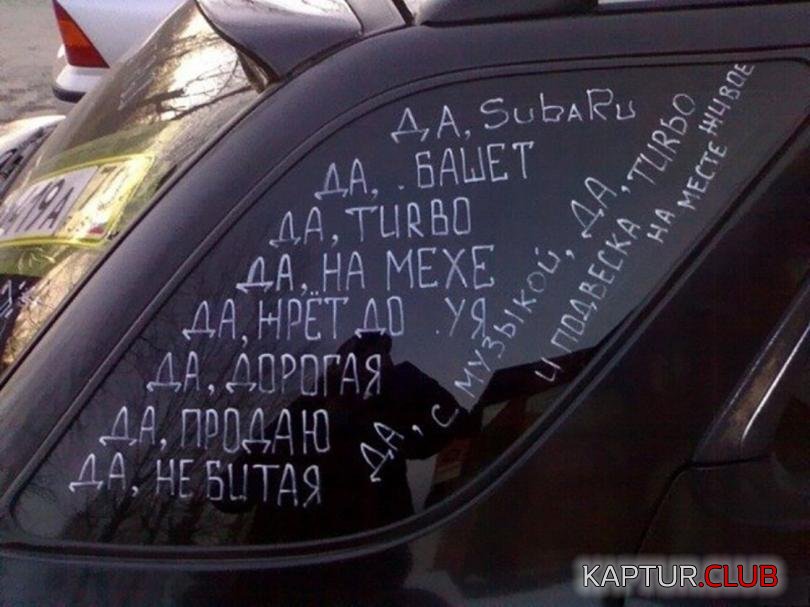 ДА, SUBARU
ДА, .БАШЕТ
ДА, TURBO
ДА, НА МЕХЕ
ДА, ЖРЁТ ДО .УЯ
ДА, ДОРОГАЯ
ДА, ПРОДАЮ
ДА, НЕ БИТАЯ
ДА, С МУЗЫКОЙ, ДА, TURBO
И ПОДВЕСКА НА МЕСТЕ ЖИВОЕ
19А
KAPTUR.CLUB